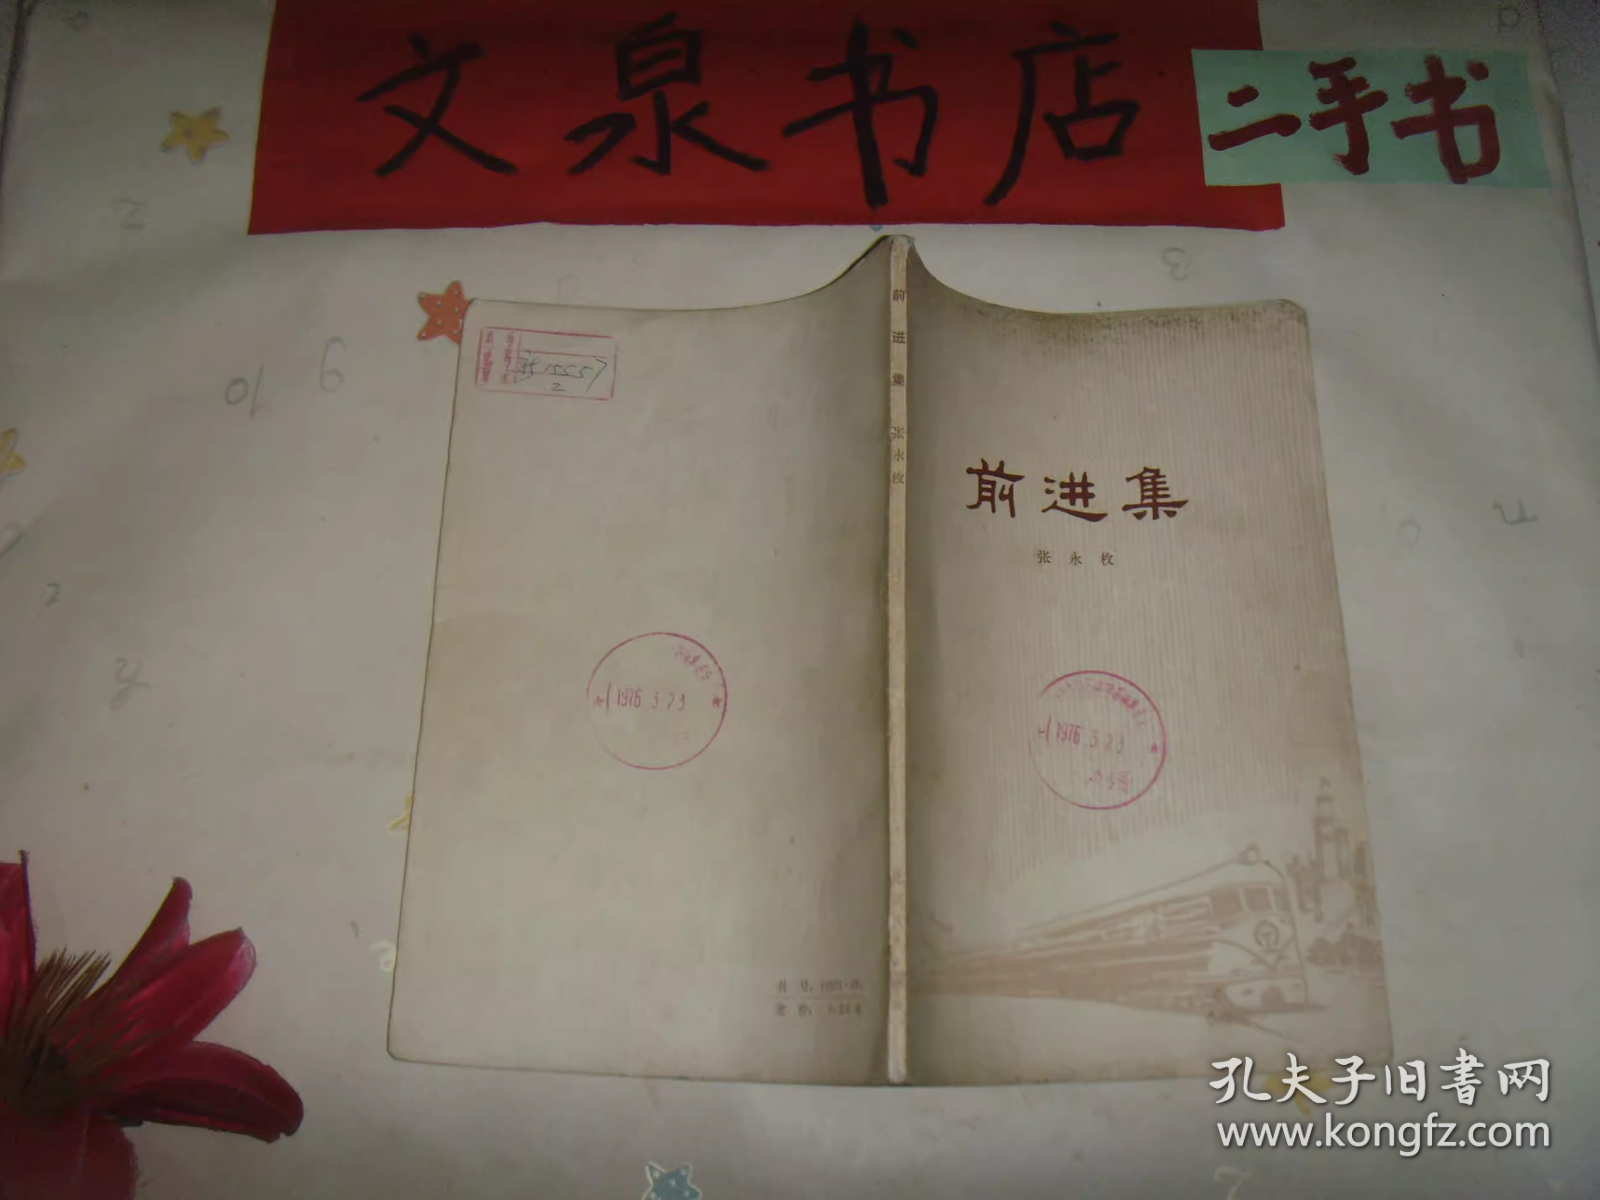 文泉书店
二手书
前进集 张永枚
前进集
张永枚
1976.3.23
1976.3.23
书号
定价
孔夫子旧書网
www.kongfz.com